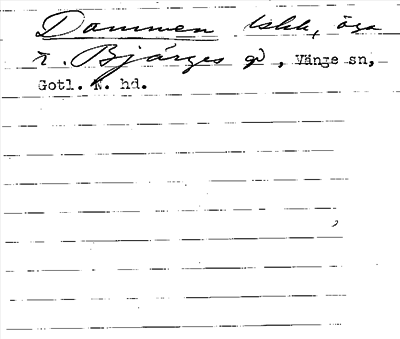 Dammen tskk, äga
t. Bjärges gd, Vänge sn,
Gotl. N. hd.